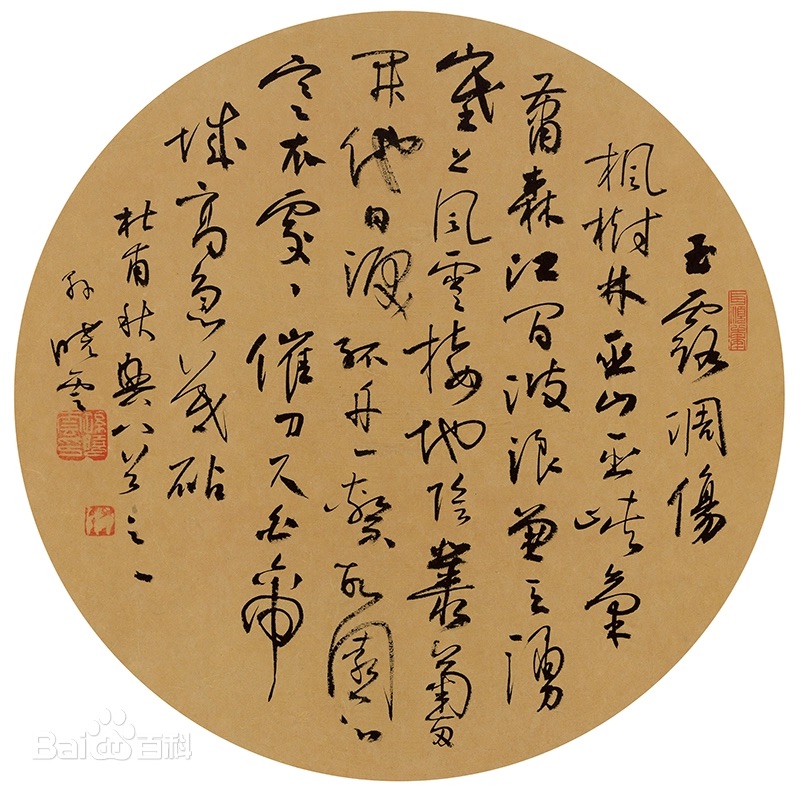 玉露凋傷
楓樹林巫山巫峽氣
蕭森江間波浪兼天湧
塞上風雲接地陰叢菊兩
開他日淚孤舟一繫故園心
寒衣處〻催刀尺白帝
城高急暮砧
杜甫秋興八首之一
孫曉雲
Bai百科